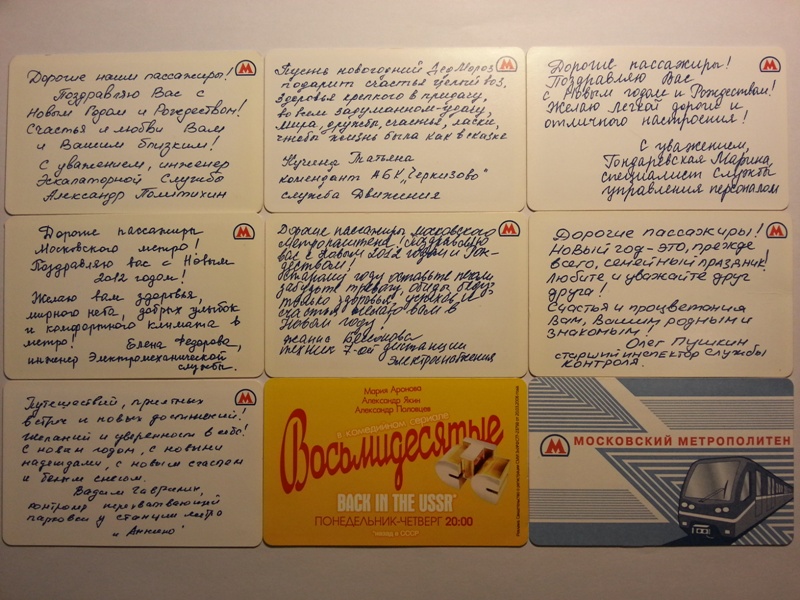 Дорогие наши пассажиры!
Поздравляю Вас с
Новым Годом и Рождеством!
Счастья и любви Вам
и Вашим близким!
С уважением, инженер
Эскалаторной Службы
Александр Политихин
Пусть новогодний Дед Мороз
подарит счастья целый воз,
здоровья крепкого в придачу,
во всем задуманном - удачу,
мира, дружбы, счастья, ласки,
чтобы жизнь была как в сказке
Татьяна
комендант АБК "Черкизово"
служба Движения
Дорогие пассажиры!
Поздравляю Вас
с Новым годом и Рождеством!
Желаю легкой дороги и
отличного настроения!
С уважением,
Гондаревская Марина,
специалист Службы
управления персоналом
Дорогие пассажиры
Московского метро!
Поздравляю вас с Новым
2012 годом!
Желаю вам здоровья,
мирного неба, добрых улыбок
и комфортного климата в
метро! Елена Федорова,
инженер Электромеханической
службы.
Дорогие пассажиры московского
метрополитена! Поздравляю
вас с Новым 2012 годом и Рож-
деством!
Старому году оставьте печали
забудьте тревогу, обиды, беду,
только здоровья, успехов и
счастья желаю вам в
Новом году!
техник 7-ой дистанции
электроснабжения
Дорогие пассажиры!
Новый год - это, прежде
всего, семейный праздник!
Любите и уважайте друг
друга!
Счастья и процветания
Вам, Вашим родным и
знакомым!
Олег Пушкин
старший инспектор Службы
контроля.
Путешествий, приятных
встреч и новых достижений!
Желаний и уверенности в себе!
С новым годом, с новыми
надеждами, с новым счастьем
и белым снегом.
Вадим Гаврилин,
контролер перехватывающей
парковки у станции метро
"Аннино"
Мария Аронова
Александр Якин
Александр Половцев
в комедийном сериале
Восьмидесятые
СТС
BACK IN THE USSR*
ПОНЕДЕЛЬНИК-ЧЕТВЕРГ 20:00
*назад в СССР
МОСКОВСКИЙ МЕТРОПОЛИТЕН